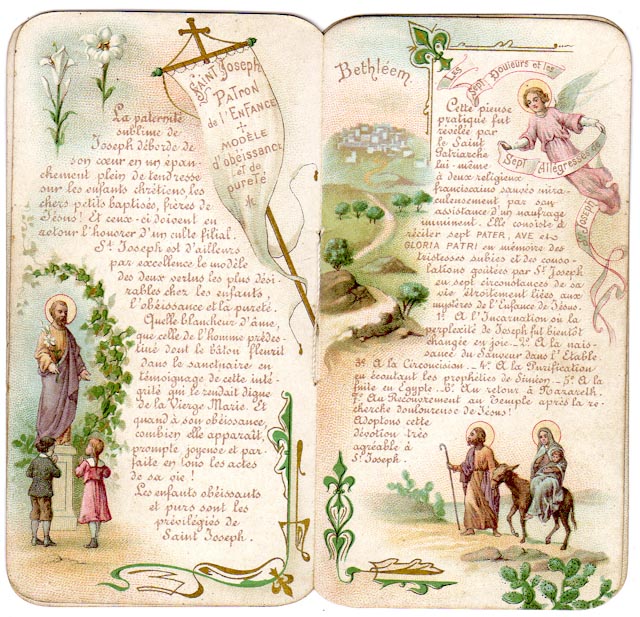 Saint Joseph
Patron
de l'Enfance
Modèle
d'obéissance
et de
pureté
La paternité
sublime de
Joseph déborde de
son cœur en un épan-
chement plein de tendresse
sur les enfants chrétiens, les
chers petits baptisés, frères de
Jésus! Et ceux-ci doivent en
retour l'honorer d'un culte filial.
St Joseph est d'ailleurs
par excellence le modèle
des deux vertus les plus dési-
rables chez les enfants,
l'obéissance et la pureté.
Quelle blancheur d'âme,
que celle de l'homme prédes-
tiné dont le bâton fleurit
dans le sanctuaire en
témoignage de cette inté-
grité qui le rendait digne
de la Vierge Marie. Et
quand à son obéissance,
combien elle apparaît,
prompte, joyeuse et par-
faite en tous les actes
de sa vie!
Les enfants obéissants
et purs sont les
privilégiés de
Saint Joseph.
Bethléem.
Les Sept Douleurs et les
Sept Allégresses
de St Joseph
Cette pieuse
pratique fut
révélée par
le Saint
Patriarche
lui-même
à deux religieux
franciscains sauvés mira-
culeusement par son
assistance d'un naufrage
imminent. Elle consiste à
réciter sept PATER, AVE et
GLORIA PATRI en mémoire des
tristesses subies et des conso-
lations goûtées par St Joseph
en sept circonstances de sa
vie étroitement liées aux
mystères de l'Enfance de Jésus:
1º A l'Incarnation où la
perplexité de Joseph fut bientôt
changée en joie. _ 2º A la nais-
sance du Sauveur dans l'Etable.
3º A la Circoncision. _ 4º A la Purification
en écoutant les prophéties de Siméon. _ 5º A la
fuite en Egypte. _ 6º Au retour à Nazareth.
7º Au Recouvrement au Temple après la re-
cherche douloureuse de Jésus!
Adoptons cette
dévotion très
agréable à
St Joseph.